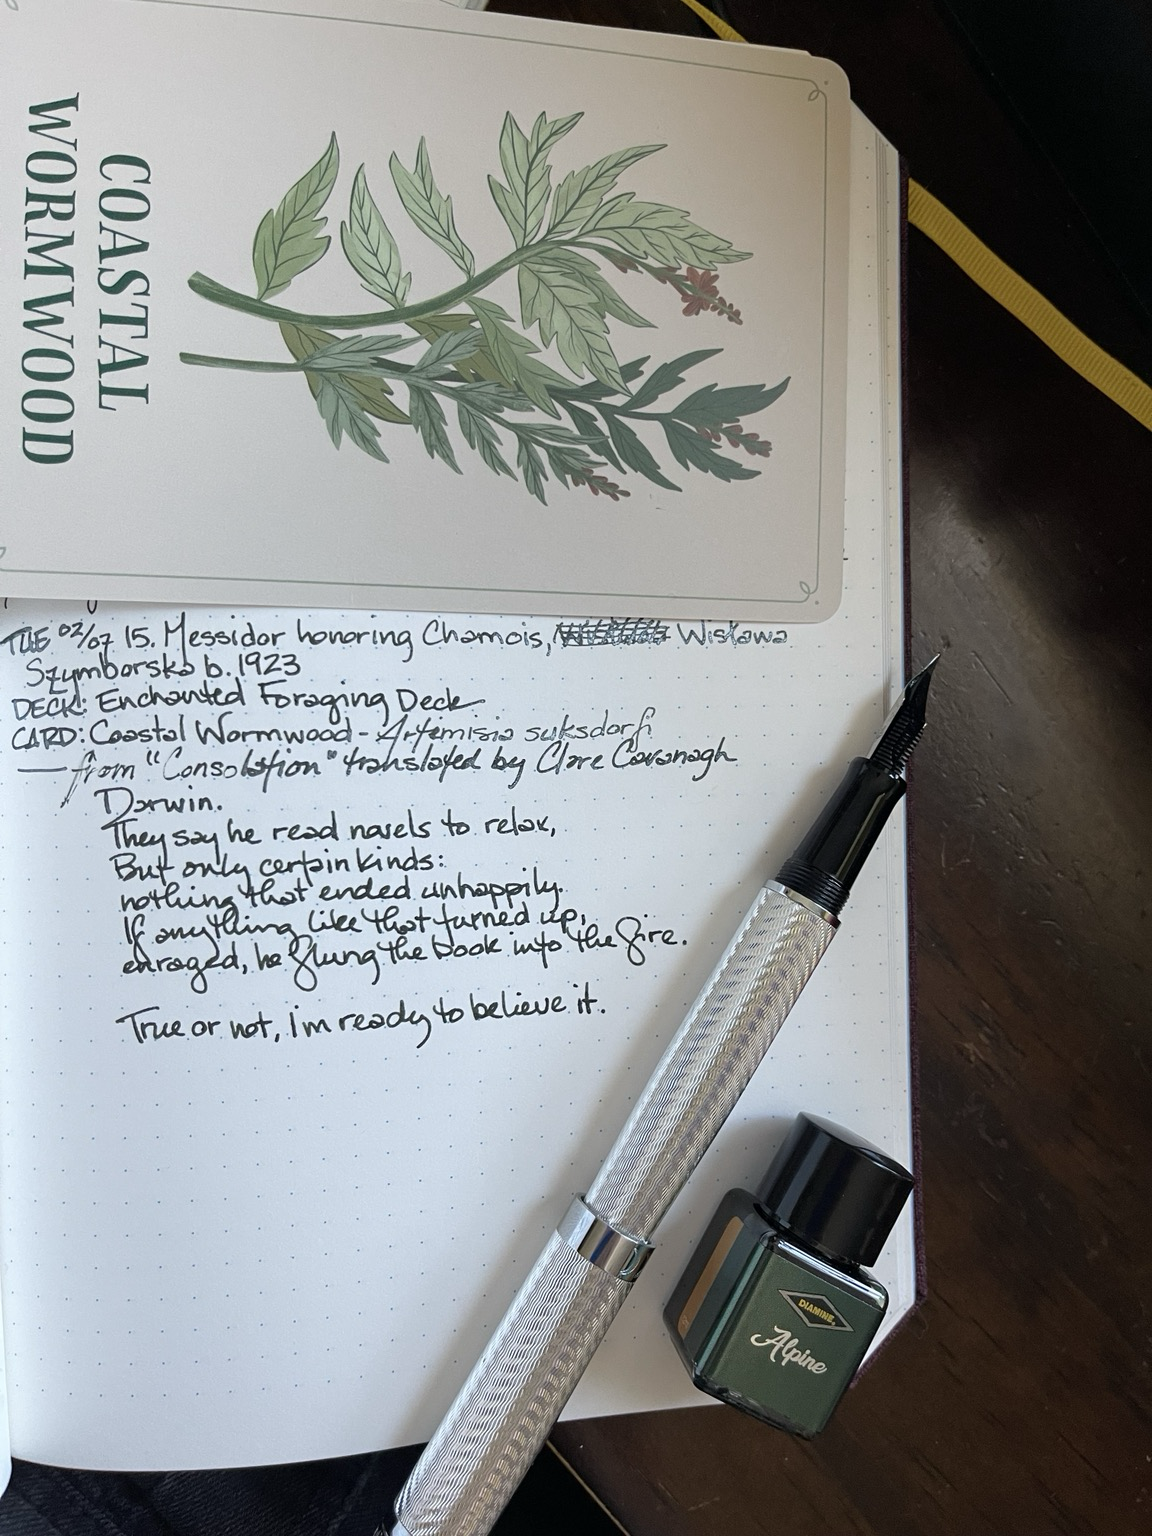 COASTAL
WORMWOOD
TUE 02/07 15. Messidor honoring Chamois, Wisława
Szymborska b. 1923
DECK: Enchanted Foraging Deck
CARD: Coastal Wormwood - Artemisia suksdorfi
— from "Consolation" translated by Clare Cavanagh
Darwin.
They say he read novels to relax,
But only certain kinds:
nothing that ended unhappily.
If anything like that turned up,
enraged, he flung the book into the fire.
True or not, i'm ready to believe it.
DIAMINE
Alpine